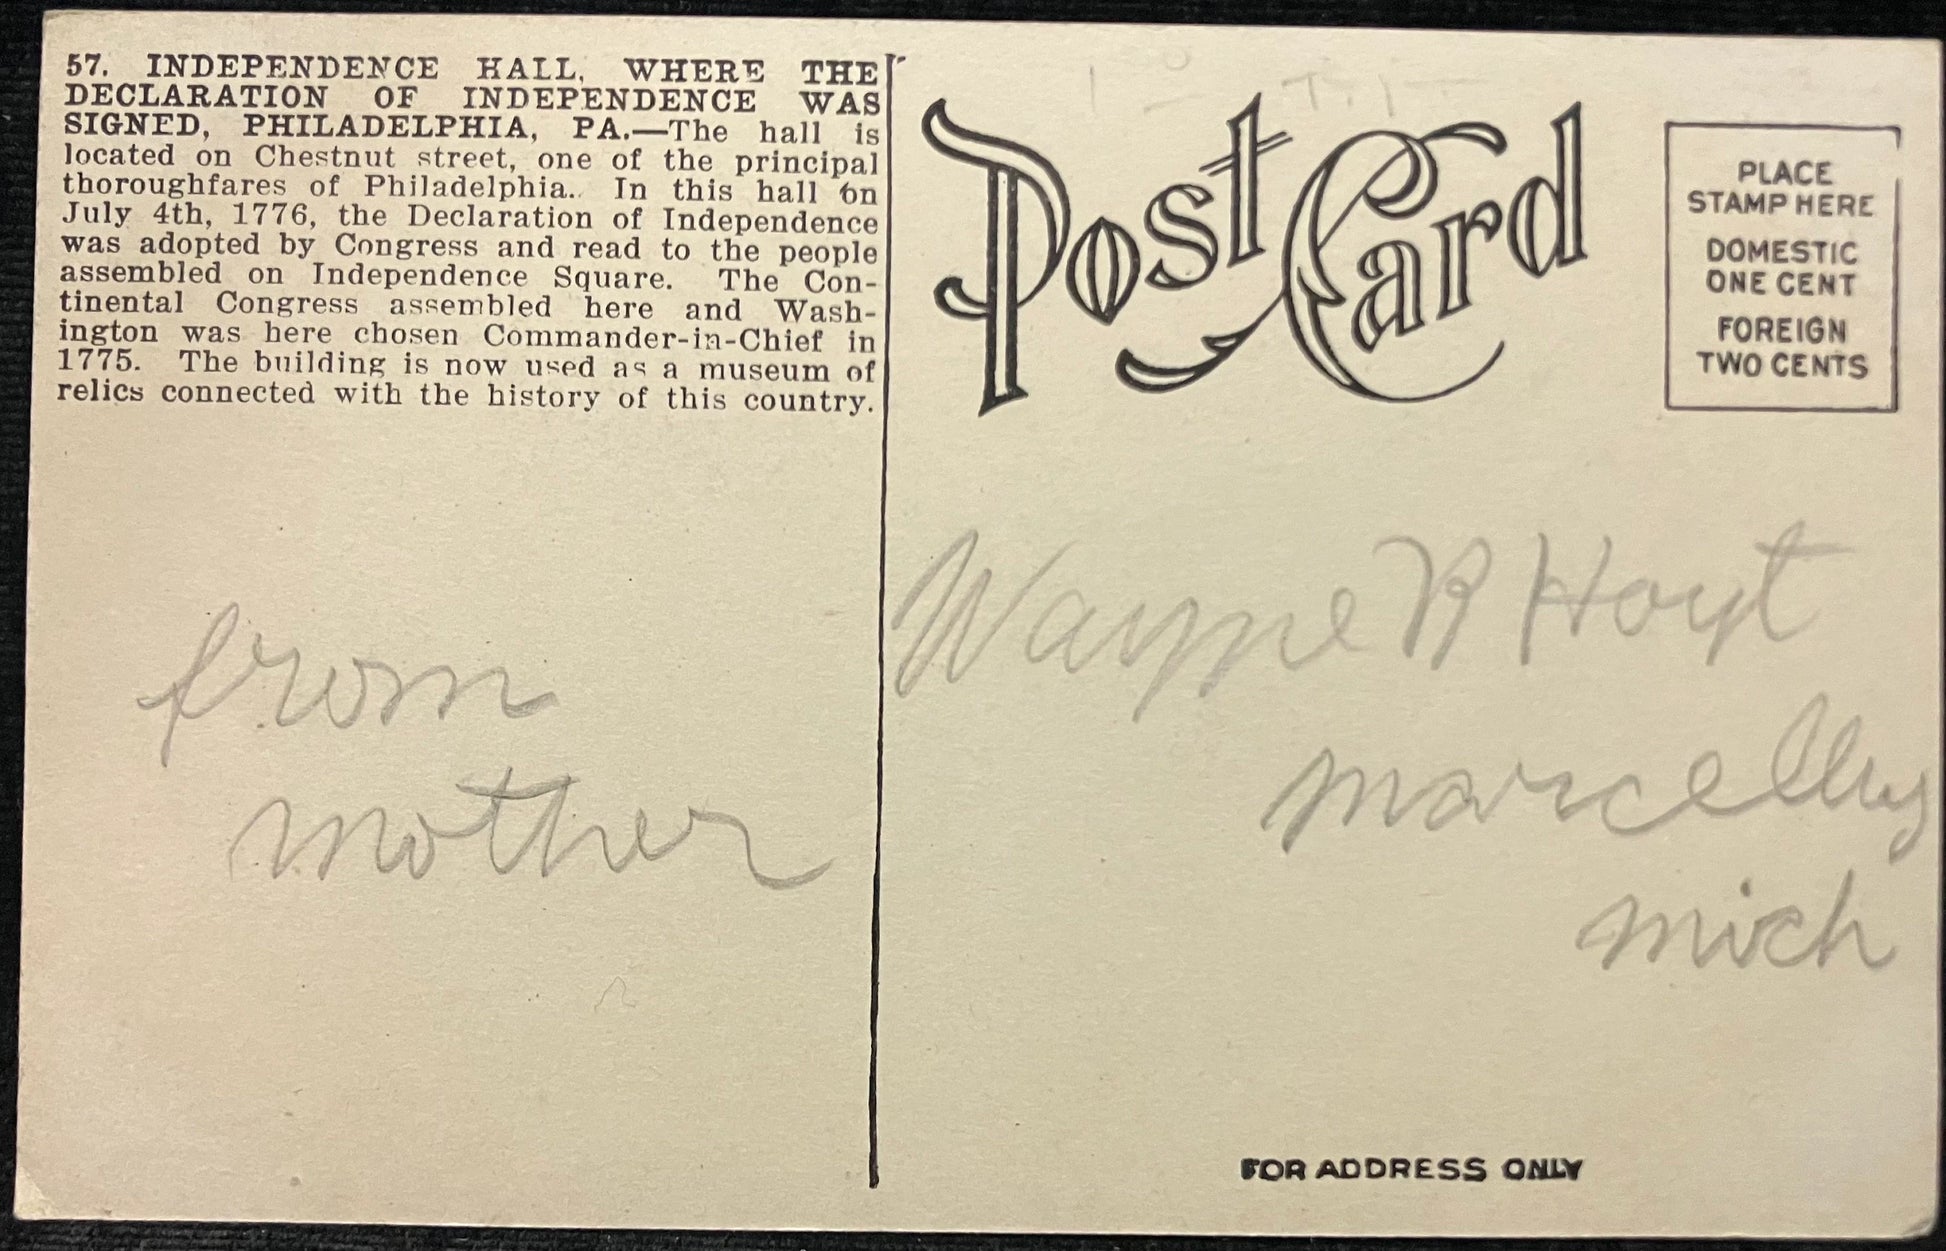 57. INDEPENDENCE HALL, WHERE THE
DECLARATION OF INDEPENDENCE WAS
SIGNED, PHILADELPHIA, PA.—The hall is
located on Chestnut street, one of the principal
thoroughfares of Philadelphia.. In this hall on
July 4th, 1776, the Declaration of Independence
was adopted by Congress and read to the people
assembled on Independence Square. The Con-
tinental Congress assembled here and Wash-
ington was here chosen Commander-in-Chief in
1775. The building is now used as a museum of
relics connected with the history of this country.
from
mother
Post Card
PLACE
STAMP HERE
DOMESTIC
ONE CENT
FOREIGN
TWO CENTS
Wayne R Hoyt
marcellus
mich
FOR ADDRESS ONLY